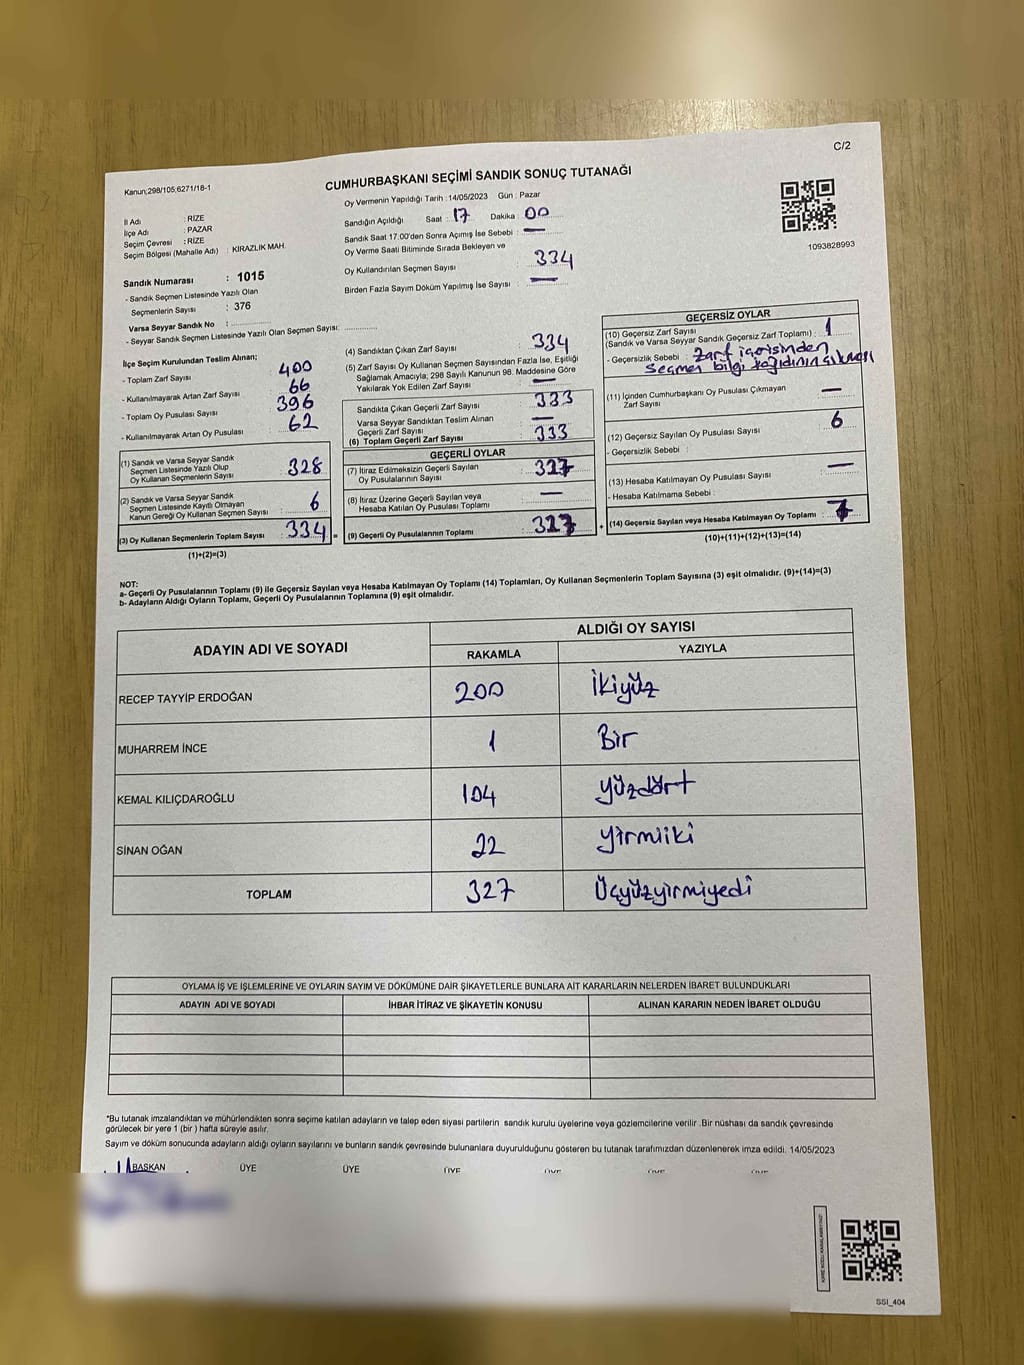 C/2
Kanun;298/105;6271/18-1
CUMHURBAŞKANI SEÇİMİ SANDIK SONUÇ TUTANAĞI
İl Adı : RİZE
İlçe Adı : PAZAR
Seçim Çevresi : RİZE
Seçim Bölgesi (Mahalle Adı) : KİRAZLIK MAH.
Sandık Numarası : 1015
- Sandık Seçmen Listesinde Yazılı Olan
Seçmenlerin Sayısı : 376
Varsa Seyyar Sandık No :
- Seyyar Sandık Seçmen Listesinde Yazılı Olan Seçmen Sayısı:
Oy Vermenin Yapıldığı Tarih : 14/05/2023 Gün : Pazar
Sandığın Açıldığı Saat : 17 Dakika : 00
Sandık Saat 17.00'den Sonra Açımış İse Sebebi : —
Oy Verme Saati Bitiminde Sırada Bekleyen ve
Oy Kullandırılan Seçmen Sayısı : 334
Birden Fazla Sayım Döküm Yapılmış İse Sayısı : —
1093828993
İlçe Seçim Kurulundan Teslim Alınan;
- Toplam Zarf Sayısı : 400
- Kullanılmayarak Artan Zarf Sayısı : 66
- Toplam Oy Pusulası Sayısı : 396
- Kullanılmayarak Artan Oy Pusulası : 62
(1) Sandık ve Varsa Seyyar Sandık
Seçmen Listesinde Yazılı Olup
Oy Kullanan Seçmenlerin Sayısı : 328
(2) Sandık ve Varsa Seyyar Sandık
Seçmen Listesinde Kayıtlı Olmayan
Kanun Gereği Oy Kullanan Seçmen Sayısı : 6
(3) Oy Kullanan Seçmenlerin Toplam Sayısı : 334 =
(1)+(2)=(3)
(4) Sandıktan Çıkan Zarf Sayısı : 334
(5) Zarf Sayısı Oy Kullanan Seçmen Sayısından Fazla İse, Eşitliği
Sağlamak Amacıyla, 298 Sayılı Kanunun 98. Maddesine Göre
Yakılarak Yok Edilen Zarf Sayısı : —
Sandıkta Çıkan Geçerli Zarf Sayısı : 333
Varsa Seyyar Sandıktan Teslim Alınan
Geçerli Zarf Sayısı : —
(6) Toplam Geçerli Zarf Sayısı : 333
GEÇERLİ OYLAR
(7) İtiraz Edilmeksizin Geçerli Sayılan
Oy Pusulalarının Sayısı : 327
(8) İtiraz Üzerine Geçerli Sayılan veya
Hesaba Katılan Oy Pusulası Toplamı : —
(9) Geçerli Oy Pusulalarının Toplamı : 327 +
GEÇERSİZ OYLAR
(10) Geçersiz Zarf Sayısı
(Sandık ve Varsa Seyyar Sandık Geçersiz Zarf Toplamı) : 1
- Geçersizlik Sebebi : Zarf içerisinden
Seçmen bilgi kağıdının çıkması
(11) İçinden Cumhurbaşkanı Oy Pusulası Çıkmayan
Zarf Sayısı : —
(12) Geçersiz Sayılan Oy Pusulası Sayısı : 6
- Geçersizlik Sebebi :
(13) Hesaba Katılmayan Oy Pusulası Sayısı : —
- Hesaba Katılmama Sebebi :
(14) Geçersiz Sayılan veya Hesaba Katılmayan Oy Toplamı : 7
(10)+(11)+(12)+(13)=(14)
NOT:
a- Geçerli Oy Pusulalarının Toplamı (9) ile Geçersiz Sayılan veya Hesaba Katılmayan Oy Toplamı (14) Toplamları, Oy Kullanan Seçmenlerin Toplam Sayısına (3) eşit olmalıdır. (9)+(14)=(3)
b- Adayların Aldığı Oyların Toplamı, Geçerli Oy Pusulalarının Toplamına (9) eşit olmalıdır.
ADAYIN ADI VE SOYADI ALDIĞI OY SAYISI
RAKAMLA YAZIYLA
RECEP TAYYİP ERDOĞAN 200 İkiyüz
MUHARREM İNCE 1 Bir
KEMAL KILIÇDAROĞLU 104 yüzdört
SİNAN OĞAN 22 yirmiiki
TOPLAM 327 Üçyüzyirmiyedi
OYLAMA İŞ VE İŞLEMLERİNE VE OYLARIN SAYIM VE DÖKÜMÜNE DAİR ŞİKAYETLERLE BUNLARA AİT KARARLARIN NELERDEN İBARET BULUNDUKLARI
ADAYIN ADI VE SOYADI İHBAR İTİRAZ VE ŞİKAYETİN KONUSU ALINAN KARARIN NEDEN İBARET OLDUĞU
*Bu tutanak imzalandıktan ve mühürlendikten sonra seçime katılan adayların ve talep eden siyasi partilerin sandık kurulu üyelerine veya gözlemcilerine verilir .Bir nüshası da sandık çevresinde
görülecek bir yere 1 (bir ) hafta süreyle asılır.
Sayım ve döküm sonucunda adayların aldığı oyların sayılarını ve bunların sandık çevresinde bulunanlara duyurulduğunu gösteren bu tutanak tarafımızdan düzenlenerek imza edildi. 14/05/2023
BAŞKAN ÜYE ÜYE ÜYE ÜYE ÜYE ÜYE
SSI_404